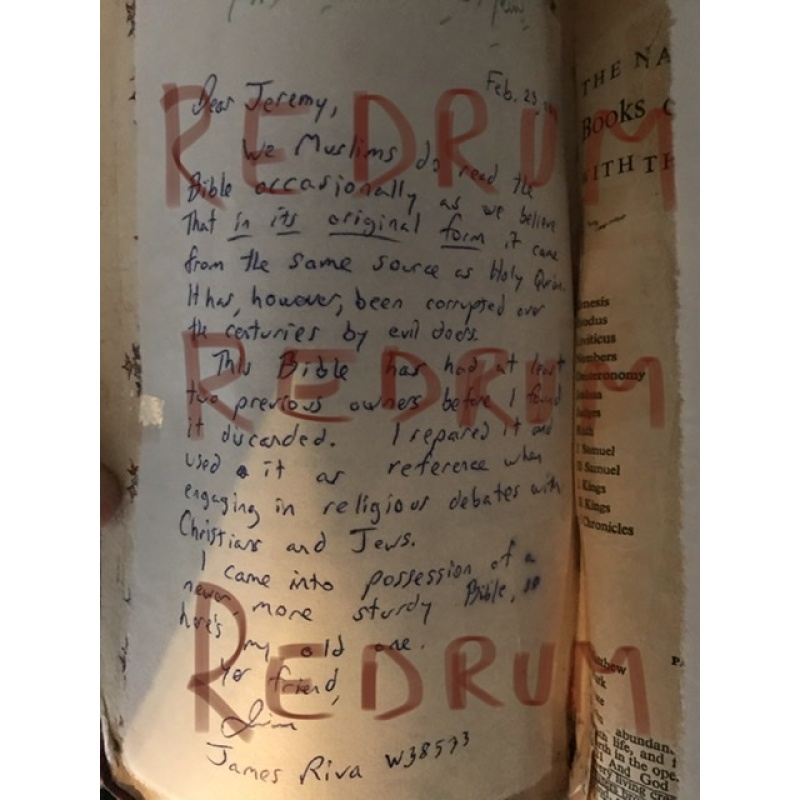 Feb. 23
Dear Jeremy,
We Muslims do read the
Bible occasionally as we believe
That in its original form it came
from the same source as Holy Qurán.
It has, however, been corrupted over
the centuries by evil doers.
This Bible has had at least
two previous owners before I found
it discarded. I repared it and
used it as reference when
engaging in religious debates with
Christians and Jews.
I came into possession of a
newer, more sturdy Bible, so
here's my old one.
Yor friend,
Jim
James Riva W38573
REDRUM
REDRUM
REDRUM
THE NA
Books o
WITH TH
enesis
xodus
eviticus
umbers
Deuteronomy
oshua
udges
Ruth
I Samuel
II Samuel
I Kings
II Kings
Chronicles
atthew
ark
abundan
life, and
rth in the ope
And God
very living crea